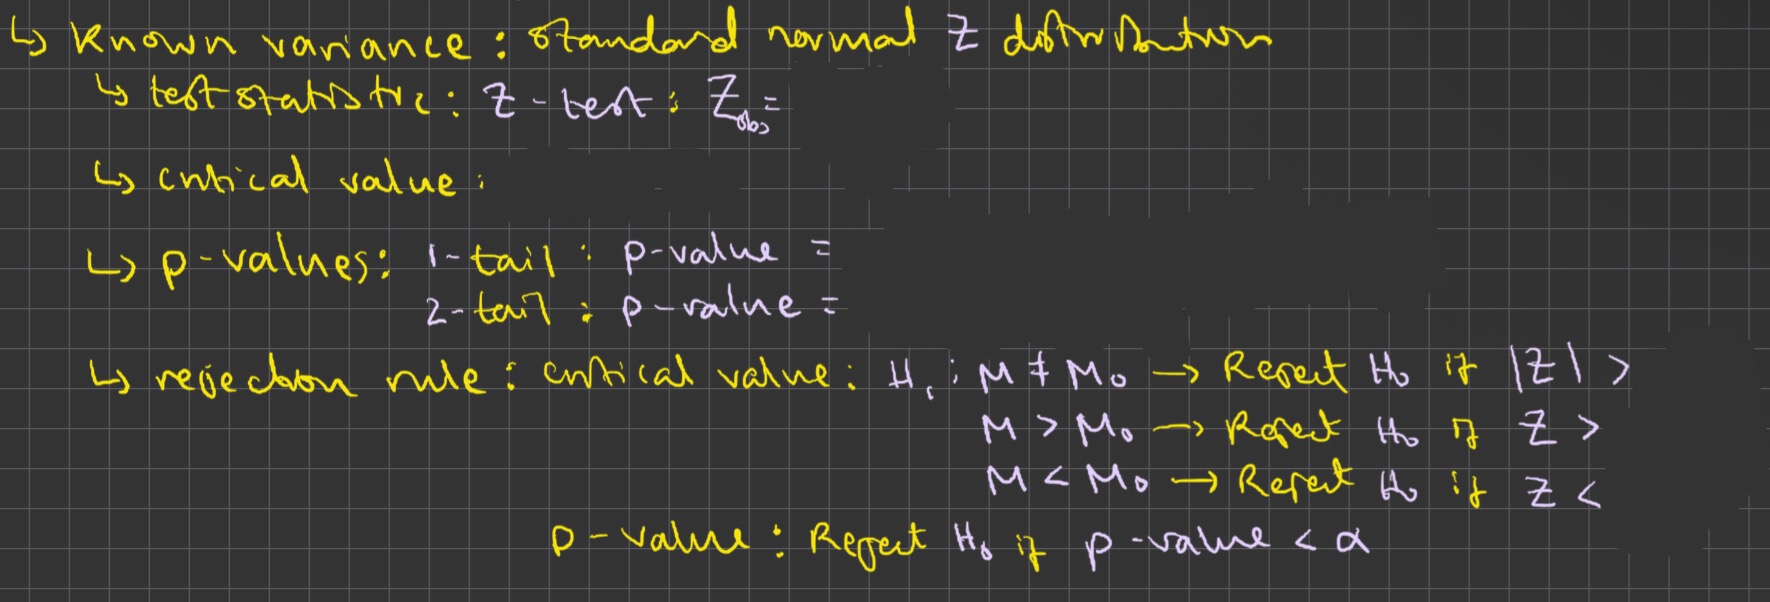 ↳ Known variance: standard normal Z distribution
↳ test statistic: Z-test: Z_obs =
↳ critical value:
↳ p-values: 1-tail: p-value =
2-tail: p-value =
↳ rejection rule: critical value: H₁: μ ≠ μ₀ → Reject H₀ if |Z| >
μ > μ₀ → Reject H₀ if Z >
μ < μ₀ → Reject H₀ if Z <
p-value: Reject H₀ if p-value < α